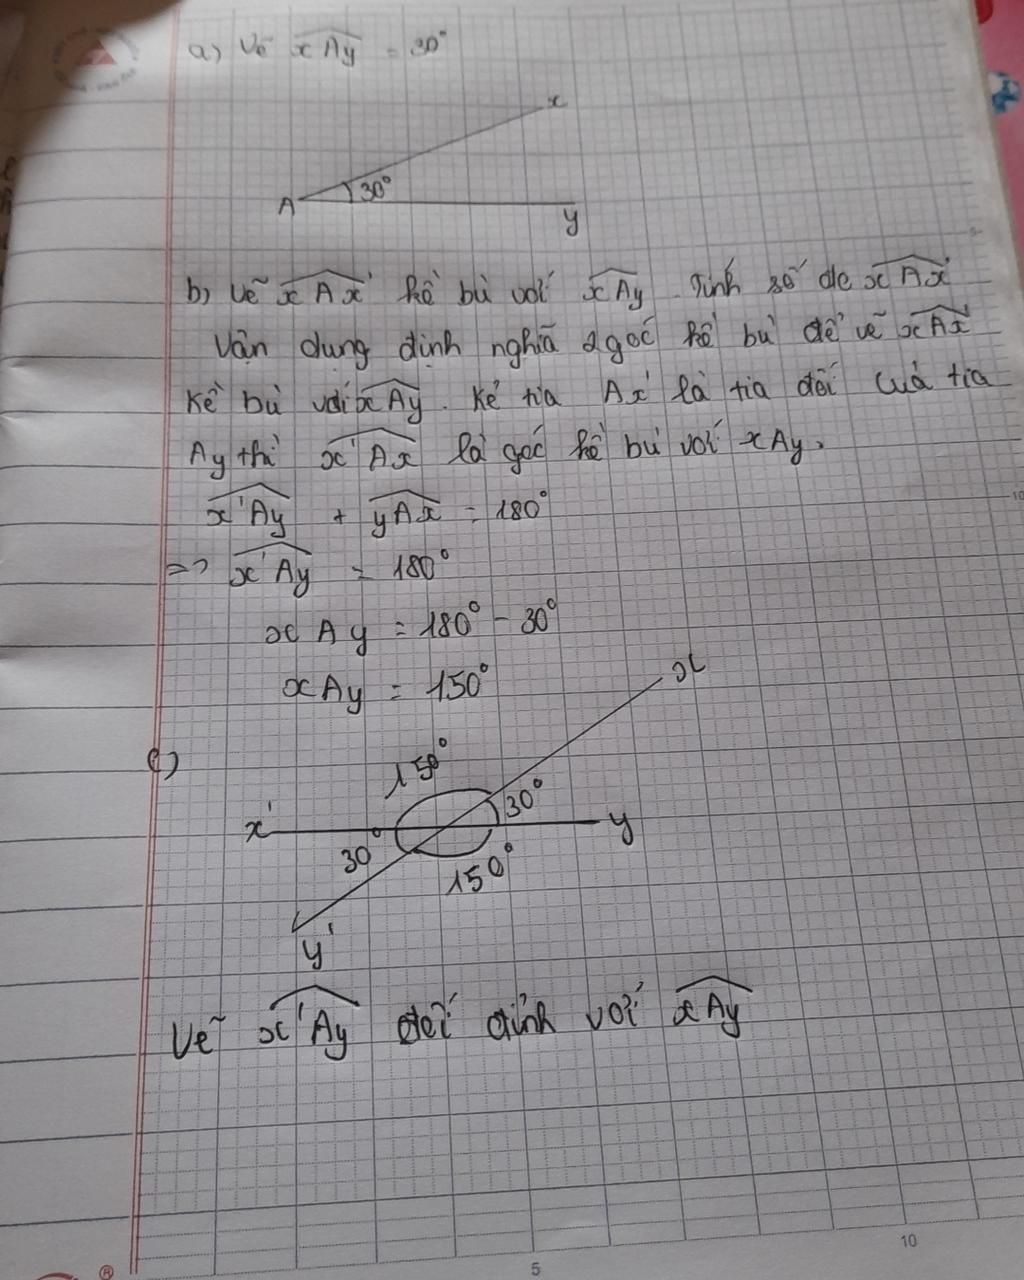 a) Vẽ xAy = 30°
x
A 30°
y
b) Vẽ xAx' kề bù với xAy. Tính số đo xAx'
Vận dụng định nghĩa 2 góc kề bù để vẽ xAx'
Kề bù với xAy. Kẻ tia Ax' là tia đối của tia
Ay thì x'Ax là góc kề bù với xAy.
x'Ay + yAx = 180°
=> x'Ay = 180°
xAy = 180° - 30°
xAy = 150°
x
c) 150°
30°
x' y
30°
150°
y'
Vẽ x'Ay đối đỉnh với xAy
5
10
10